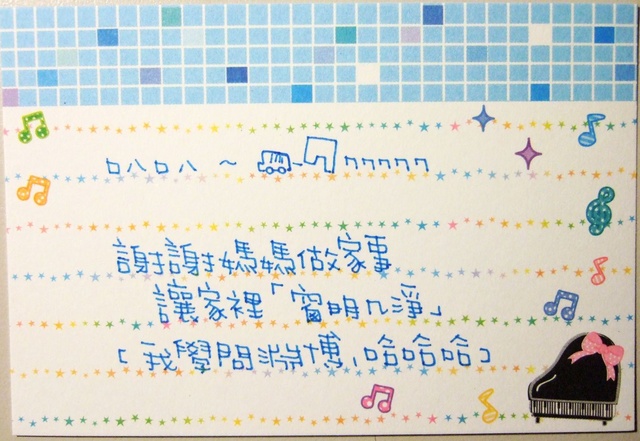 叭叭 ~ ㄇㄇㄇㄇㄇㄇ
謝謝媽媽做家事
讓家裡「窗明几淨」
[我學問淵博,哈哈哈]